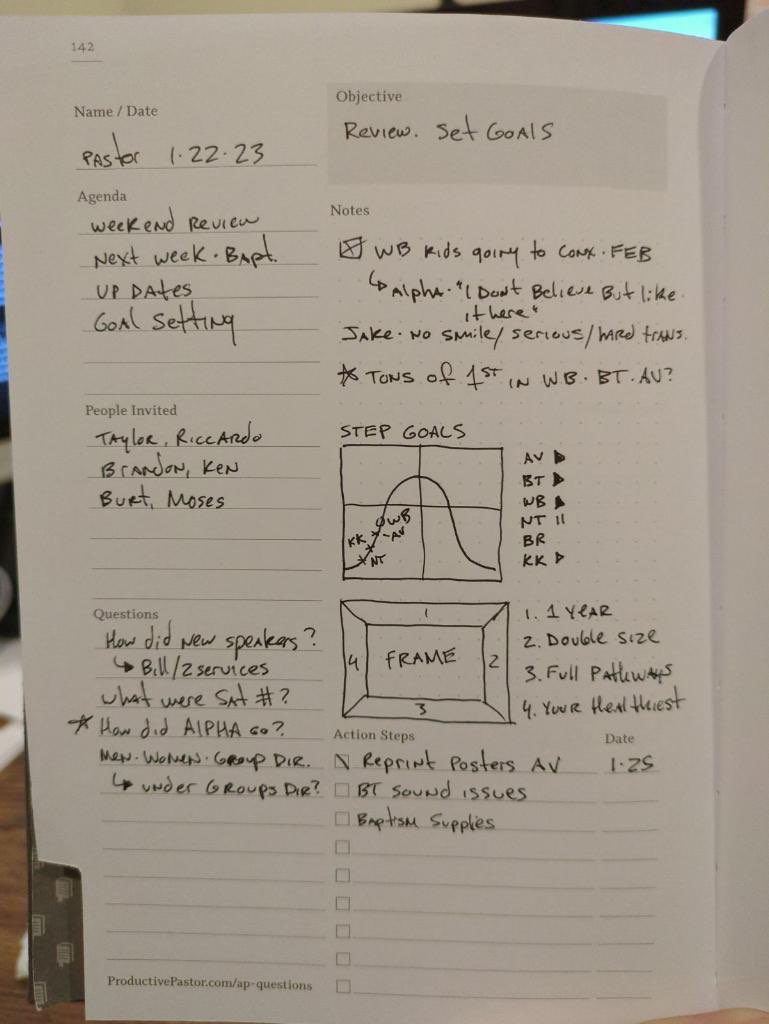 142
Name / Date
Pastor 1.22.23
Objective
Review. Set Goals
Agenda
Weekend Review
Next week. Bapt.
Up Dates
Goal Setting
People Invited
Taylor, Riccardo
Brandon, Ken
Burt, Moses
Questions
How did new speakers?
↳ Bill/2 services
What were Sat #?
* How did ALPHA go?
Men. Women. Group Dir.
↳ under Groups Dir?
ProductivePastor.com/ap-questions
Notes
☒ WB Kids going to Conx. FEB
↳ Alpha. "I Dont Believe But like
it here"
Jake. No smile/serious/hard trans.
* Tons of 1st in WB. BT. AV?
STEP GOALS
WB
KK
AV
NT
AV ▶
BT ▶
WB ▲
NT II
BR
KK ▷
1
4 FRAME 2
3
1. 1 Year
2. Double Size
3. Full Pathways
4. Your Healthiest
Action Steps Date
Reprint Posters AV 1.25
BT Sound issues
Baptism Supplies